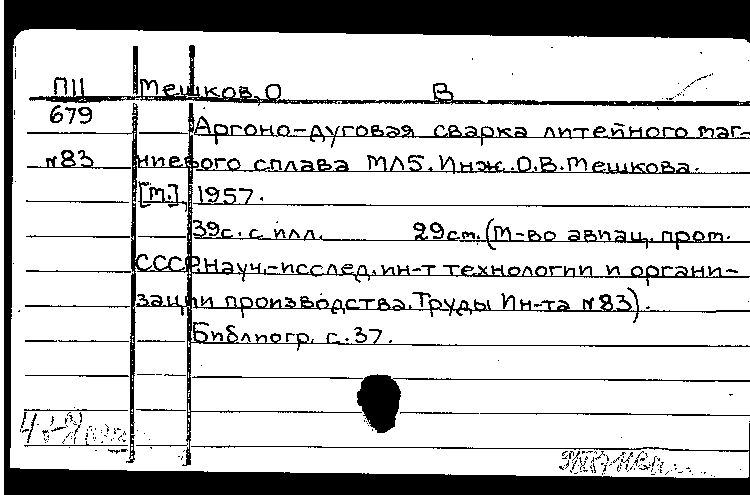 П11 Мешков, О В
679 Аргоно-дуговая сварка литейного маг-
№83 ниевого сплава МЛ5. Инж. О.В. Мешкова.
[М.], 1957.
39с. с илл. 29см. (М-во авиац. пром.
СССР. Науч.-исслед. ин-т технологии и органи-
зации производства. Труды Ин-та №83).
Библиогр. с. 37.